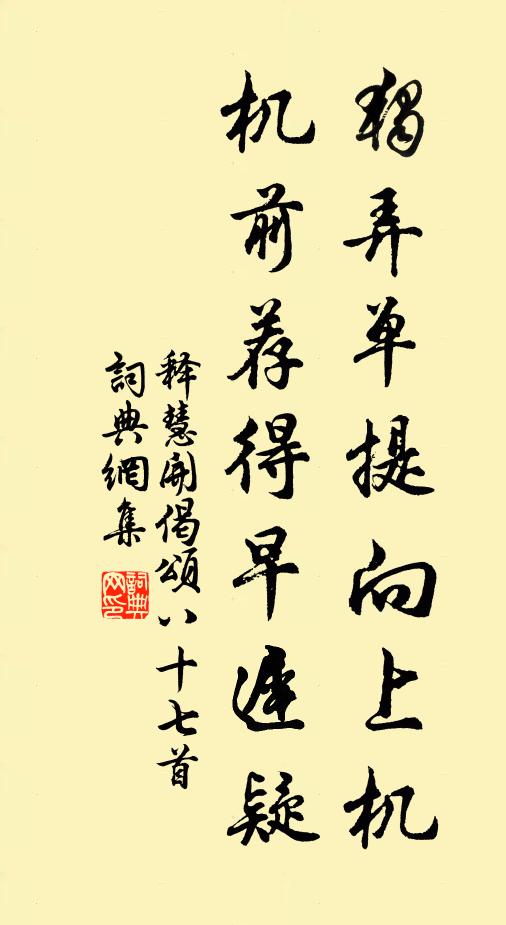 独弄单提向上机
机前荐得早迟疑
释慧開偈頌八十七首
詞典網集
詞典网印